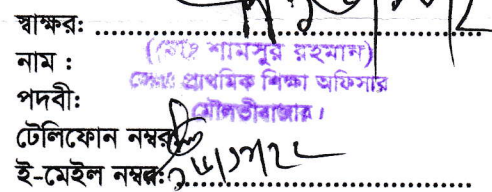 স্বাক্ষর:
নাম : (মোঃ শামসুর রহমান)
পদবী: জেলা প্রাথমিক শিক্ষা অফিসার
মৌলভীবাজার।
টেলিফোন নম্বর:
ই-মেইল নম্বর: